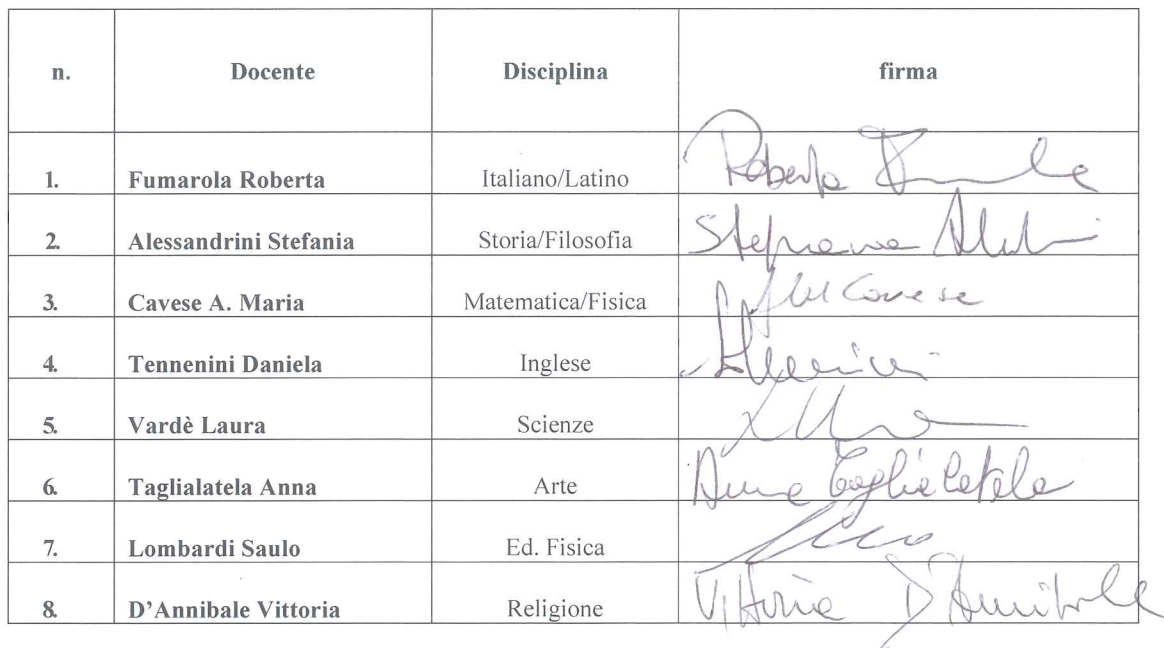 n. Docente Disciplina firma
1. Fumarola Roberta Italiano/Latino Roberta
2. Alessandrini Stefania Storia/Filosofia Stefania
3. Cavese A. Maria Matematica/Fisica Cavese
4. Tennenini Daniela Inglese
5. Vardè Laura Scienze
6. Taglialatela Anna Arte Anna Taglialatela
7. Lombardi Saulo Ed. Fisica
8. D'Annibale Vittoria Religione Vittoria D'Annibale